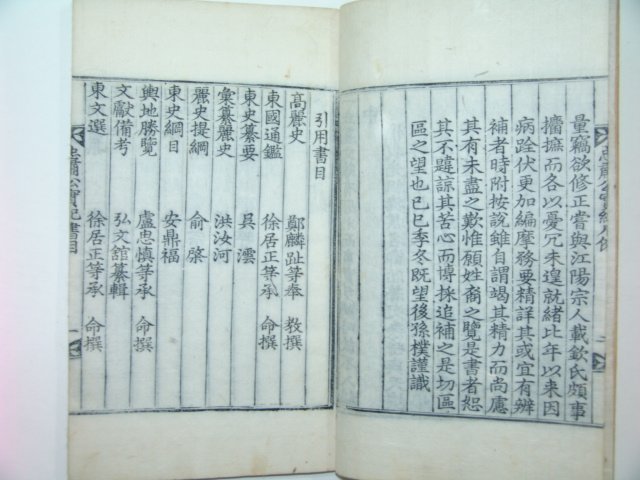 量竊欲修正嘗與江陽宗人載欽氏頗事
攟摭而各以憂冗未遑就緒比年以来因
病跧伏更加編摩務要精詳其或宜有辨
補者時附按說雖自謂竭其精力而尚慮
其有未盡之歎惟願姓裔之覽是書者恕
其不韙諒其苦心而博採追補之是切區
區之望也己巳季冬既望後孫樸謹識
引用書目
高麗史 鄭麟趾等奉 教撰
東國通鑑 徐居正等承 命撰
東史纂要 吳澐
彙纂麗史 洪汝河
麗史提綱 俞棨
東史綱目 安鼎福
輿地勝覽 盧思慎等承 命撰
文獻備考 弘文舘纂輯
東文選 徐居正等承 命撰
忠肅公實紀 書目 一